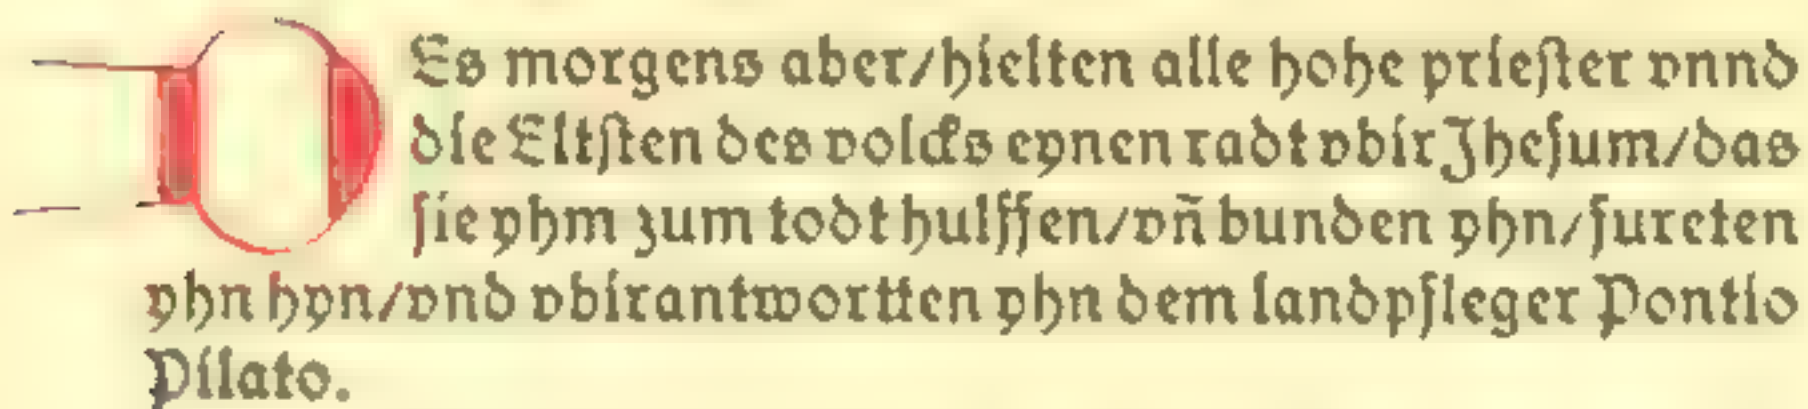 DEs morgens aber/hielten alle hohe priester vnnd
die Eltsten des volcks eynen radt vbir Jhesum/das
sie yhm zum todt hulffen/vñ bunden yhn/fureten
yhn hyn/vnd vbirantwortten yhn dem landpfleger Pontio
Pilato.